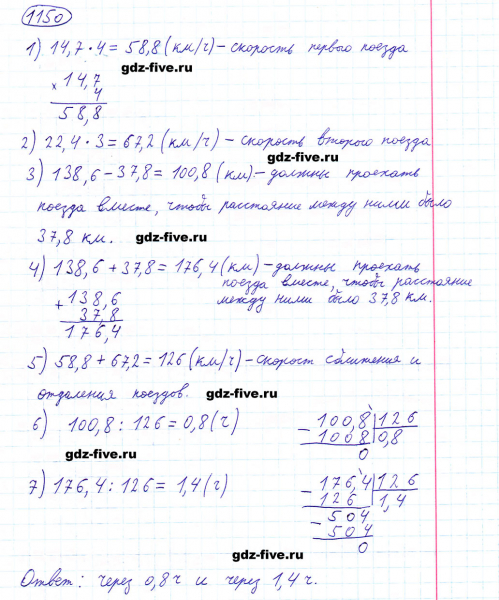 1150
1) 14,7 · 4 = 58,8 (км/ч) – скорость первого поезда
gdz-five.ru
× 14,7
4
58,8
2) 22,4 · 3 = 67,2 (км/ч) – скорость второго поезда
gdz-five.ru
3) 138,6 – 37,8 = 100,8 (км) – должны проехать
поезда вместе, чтобы расстояние между ними было
37,8 км.
gdz-five.ru
4) 138,6 + 37,8 = 176,4 (км) – должны проехать
поезда вместе, чтобы расстояние
между ними было 37,8 км.
+ 138,6
37,8
176,4
5) 58,8 + 67,2 = 126 (км/ч) – скорост сближения и
отдаления поездов.
gdz-five.ru
6) 100,8 : 126 = 0,8 (ч)
– 100,8 126
100 8 0,8
0
gdz-five.ru
7) 176,4 : 126 = 1,4 (ч)
– 176,4 126
126 1,4
– 504
504
0
gdz-five.ru
Ответ: через 0,8 ч и через 1,4 ч.